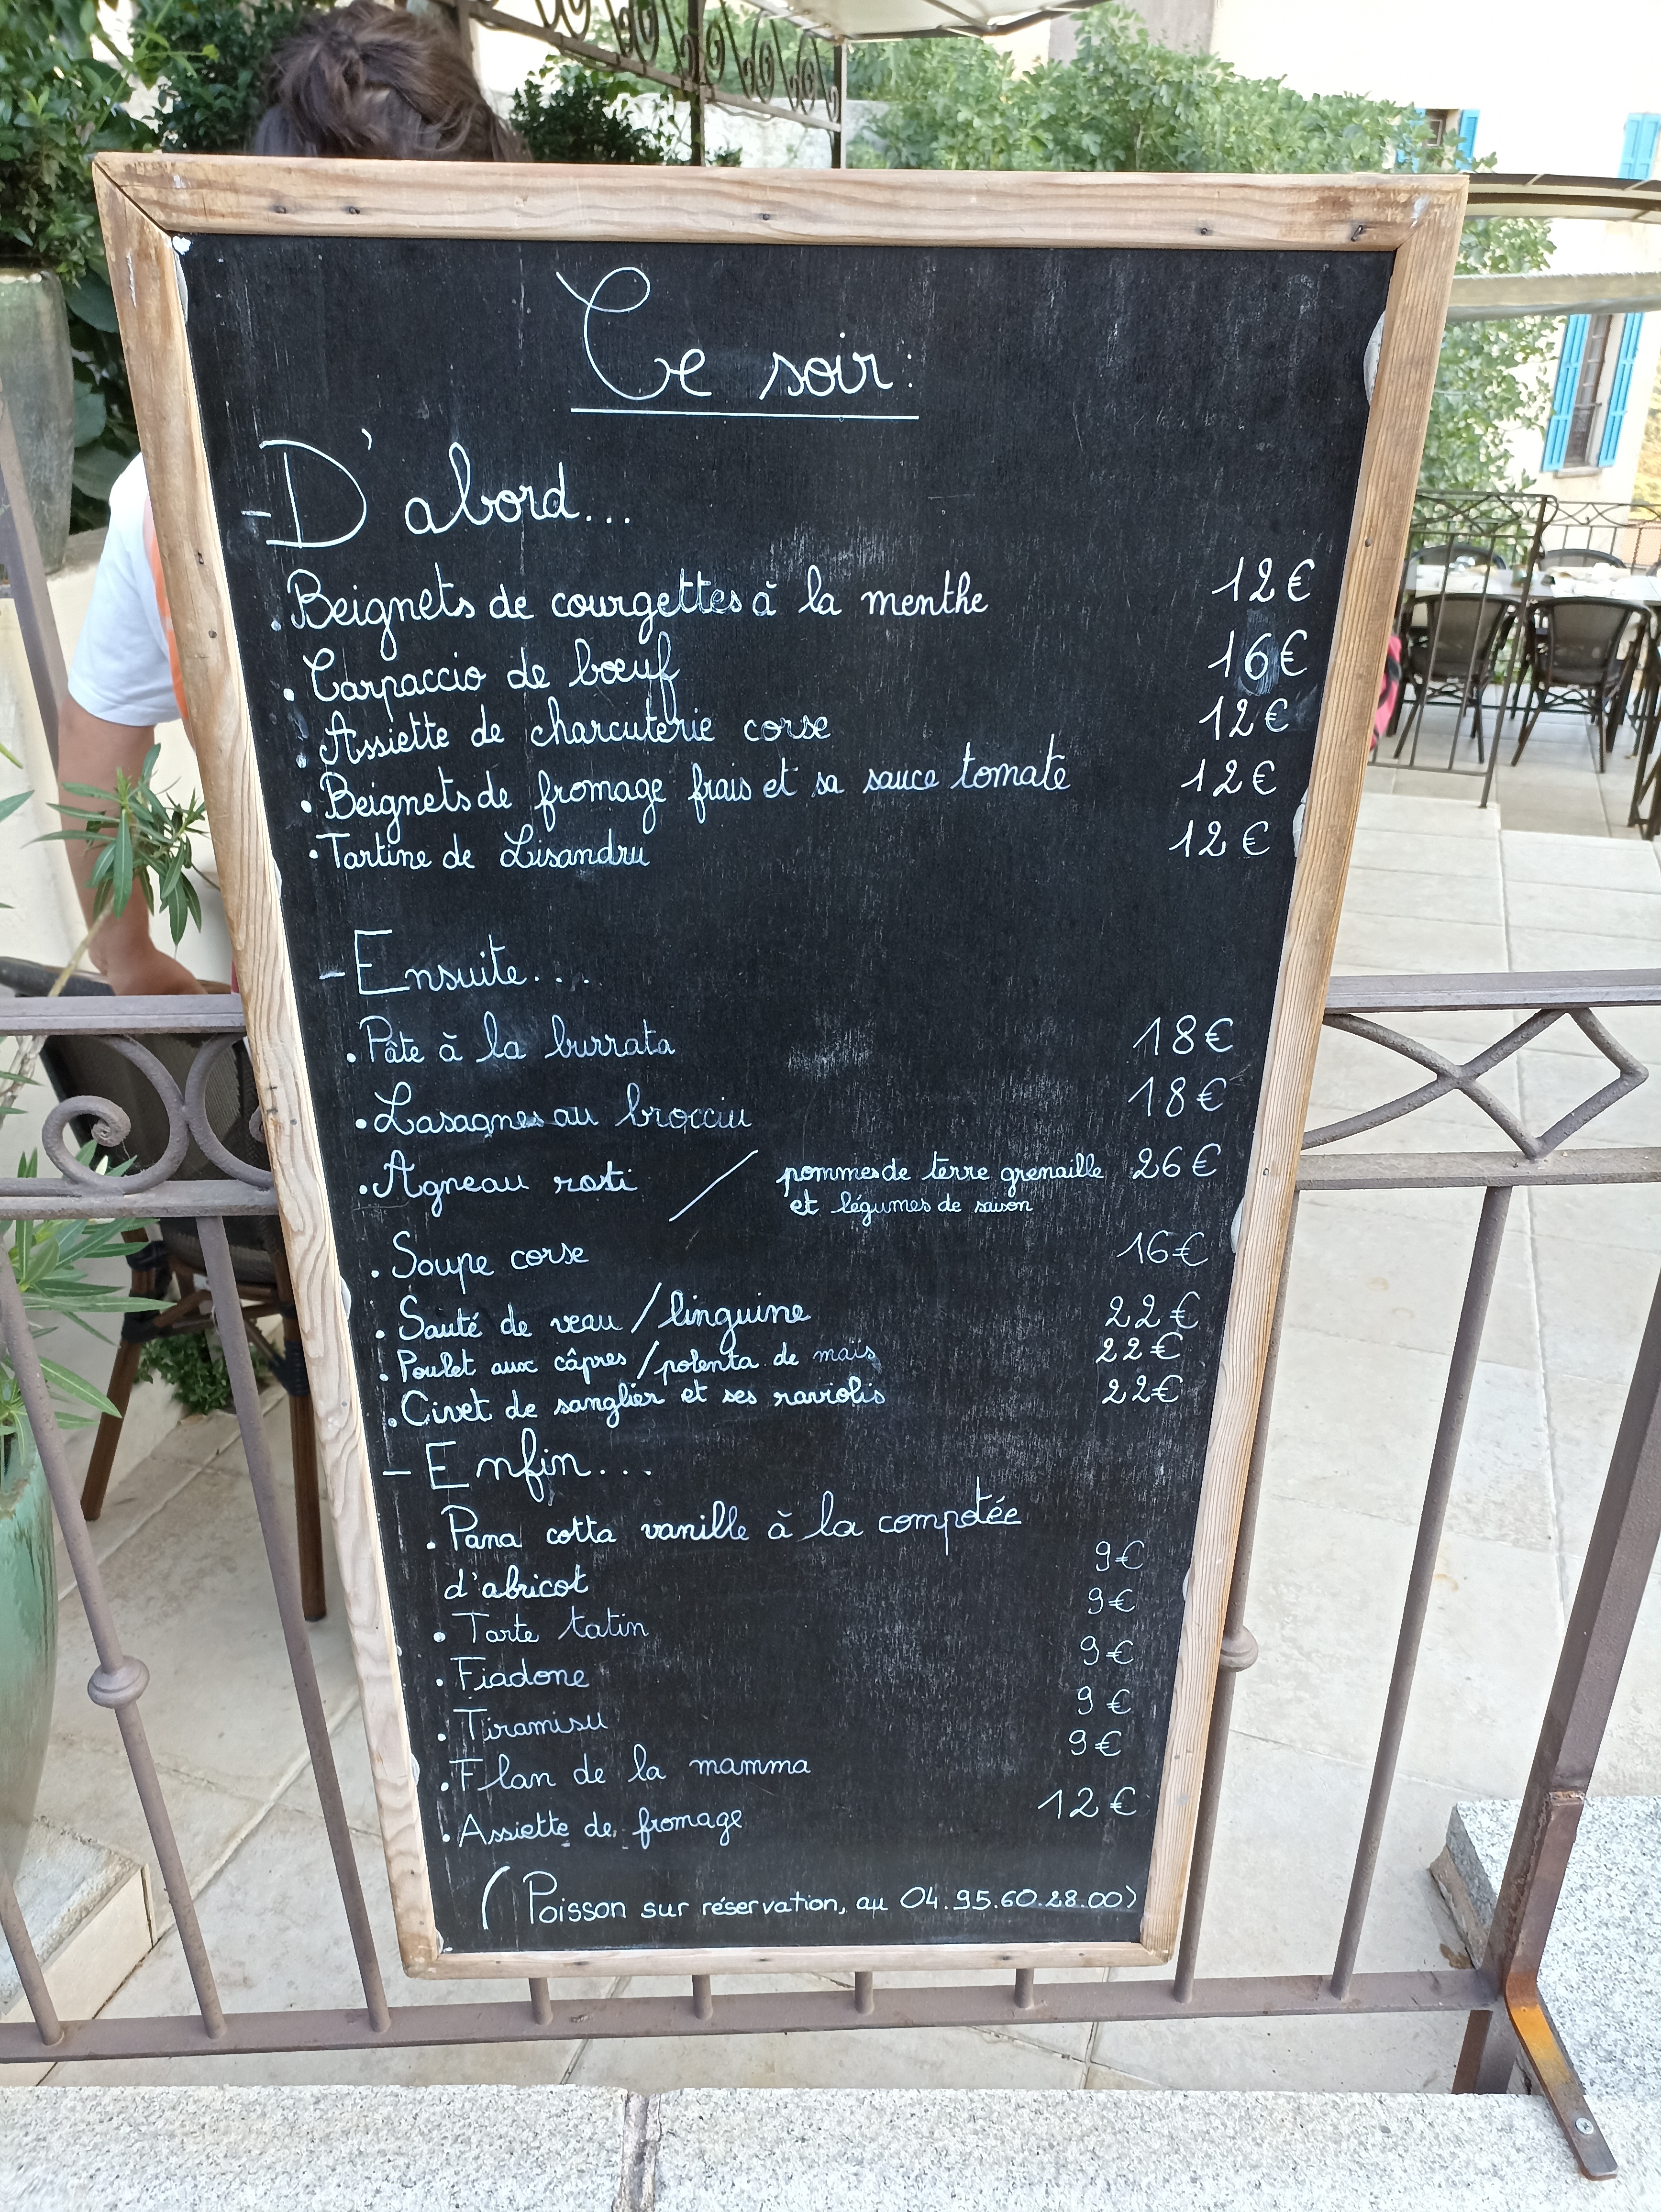 Ce soir:
- D'abord...
. Beignets de courgettes à la menthe 12€
. Carpaccio de bœuf 16€
. Assiette de charcuterie corse 12€
. Beignets de fromage frais et sa sauce tomate 12€
. Tartine de Lisandru 12€
- Ensuite....
. Pâte à la burrata 18€
. Lasagnes au brocciu 18€
. Agneau roti / pommes de terre grenaille 26€
et légumes de saison
. Soupe corse 16€
. Sauté de veau / linguine 22€
. Poulet aux câpres / polenta de maïs 22€
. Civet de sanglier et ses raviolis 22€
- Enfin...
. Pana cotta vanille à la compotée
d'abricot 9€
. Tarte tatin 9€
. Fiadone 9€
. Tiramisu 9€
. Flan de la mamma 9€
. Assiette de fromage 12€
(Poisson sur réservation, au 04.95.60.28.00)